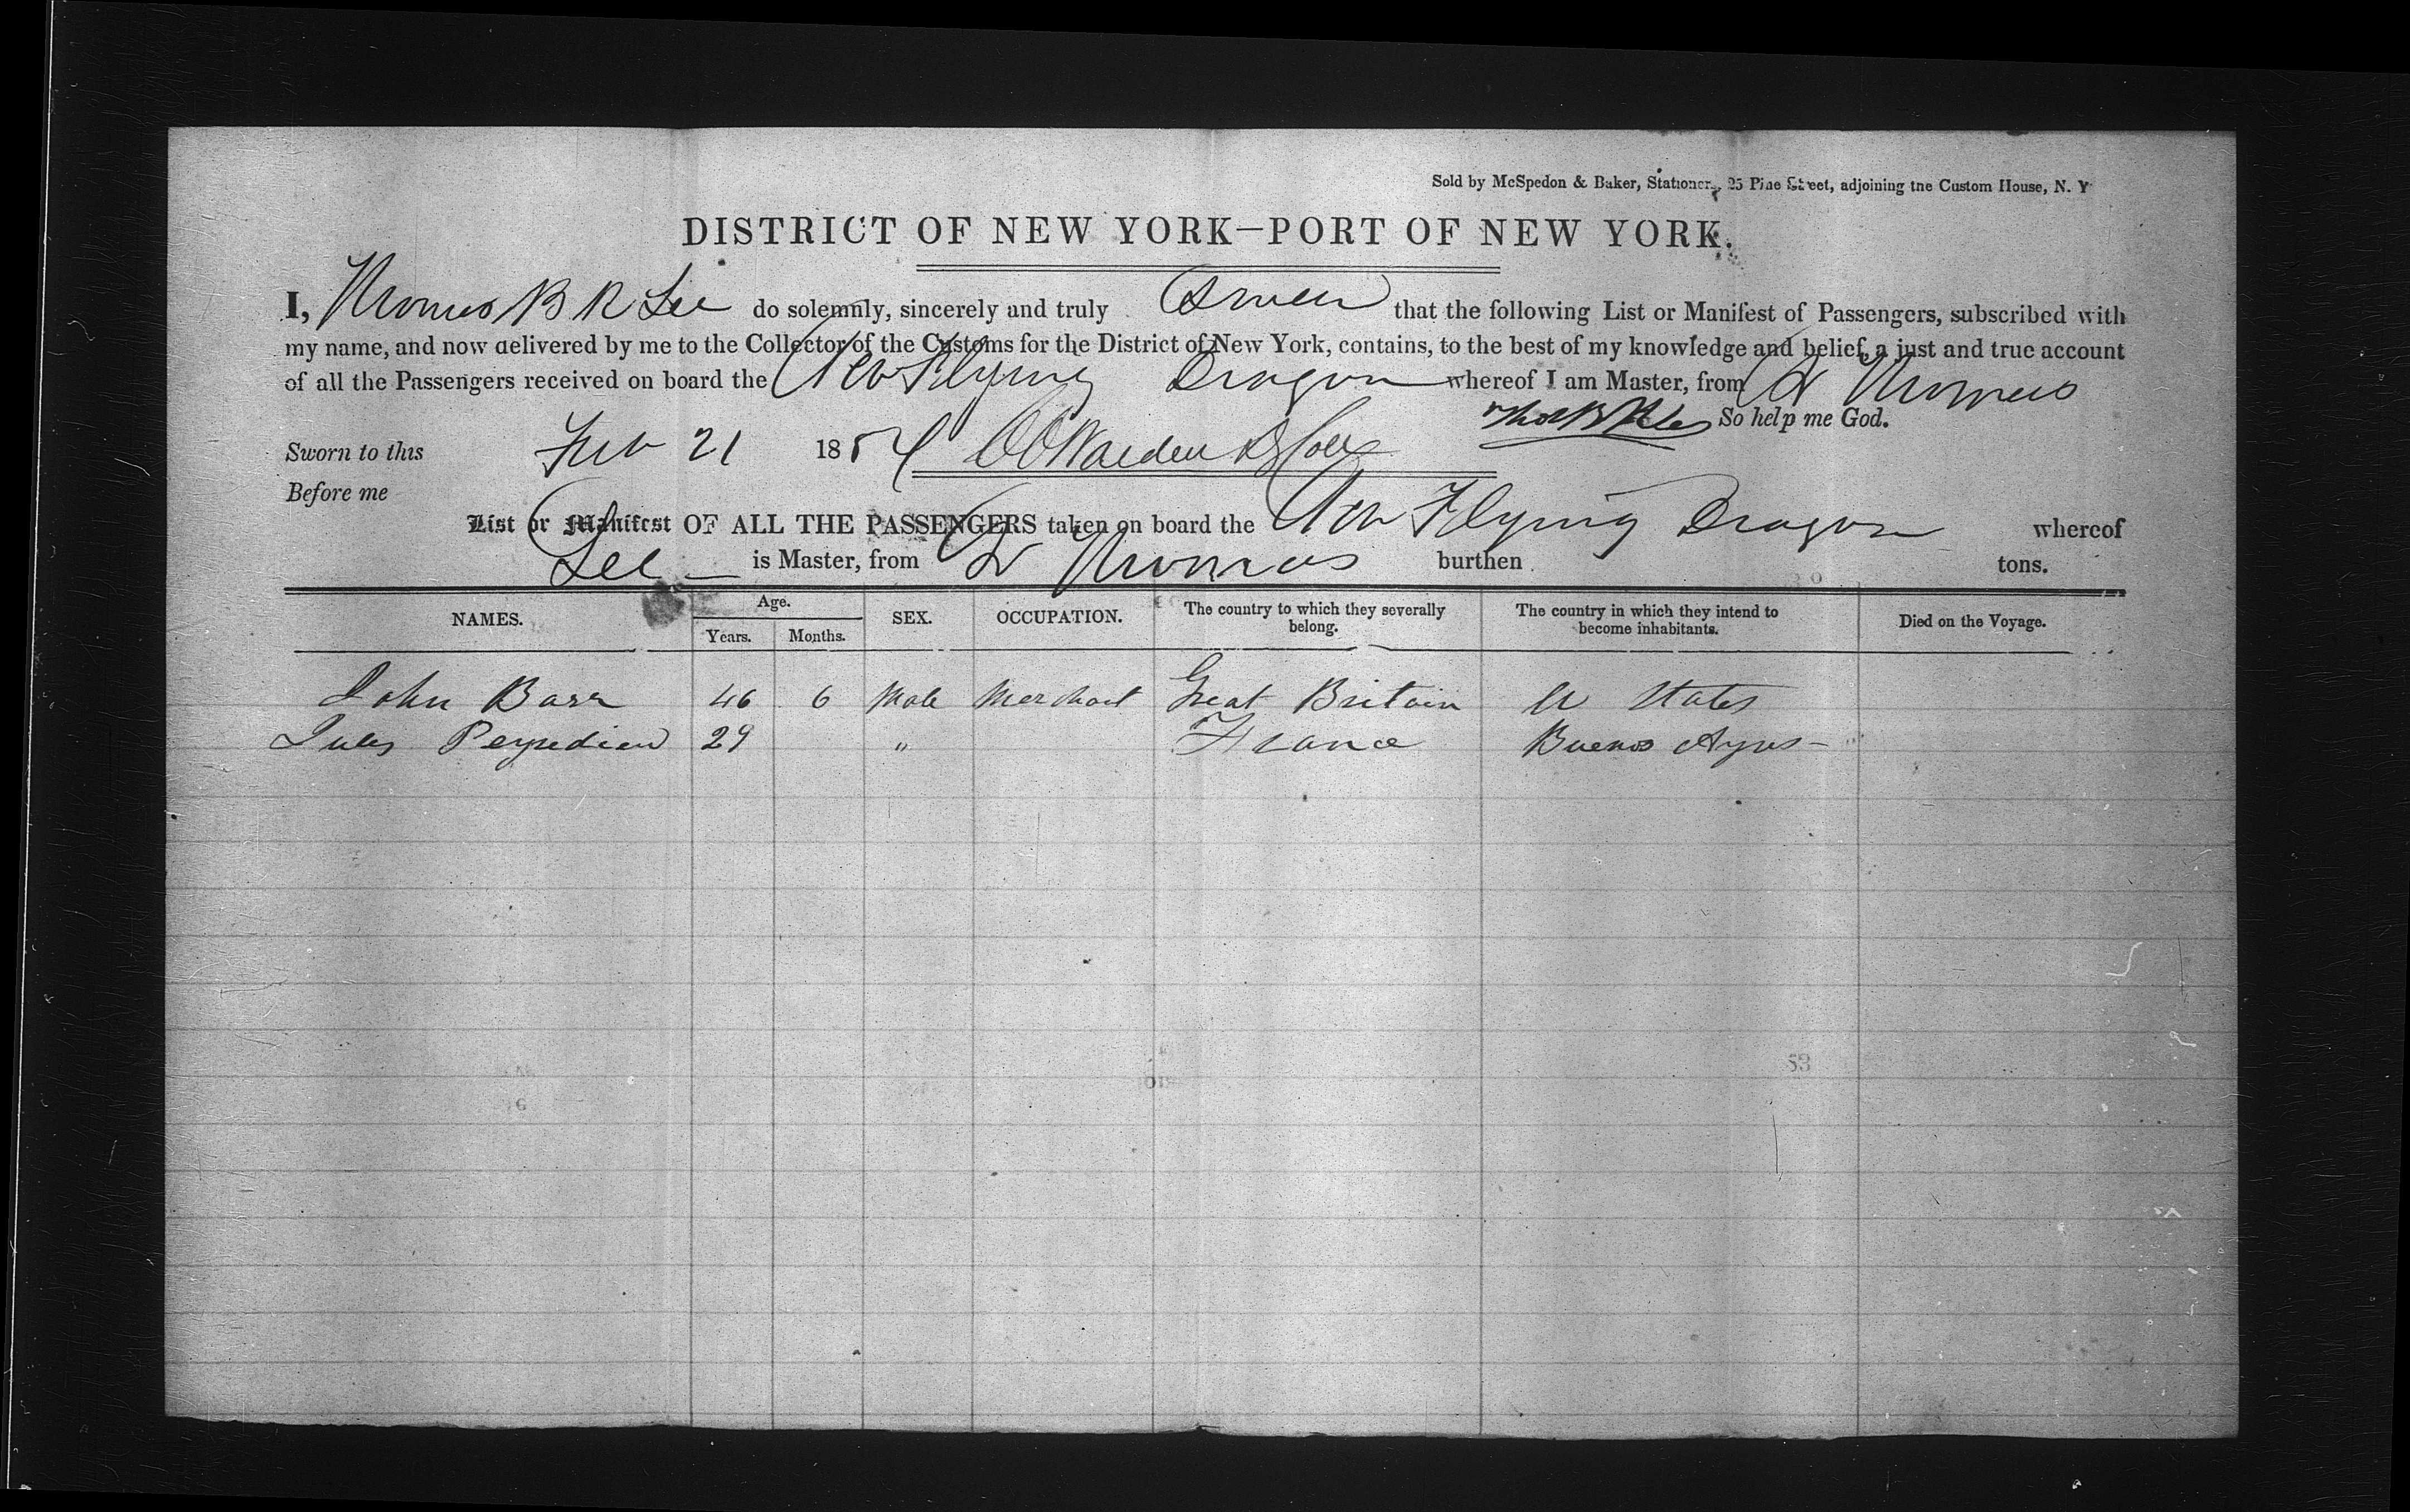 Sold by McSpedon & Baker, Stationers, 25 Pine Street, adjoining the Custom House, N. Y
DISTRICT OF NEW YORK—PORT OF NEW YORK.
I, Thomas B R Lee do solemnly, sincerely and truly Swear that the following List or Manifest of Passengers, subscribed with
my name, and now delivered by me to the Collector of the Customs for the District of New York, contains, to the best of my knowledge and belief, a just and true account
of all the Passengers received on board the Flying Dragon whereof I am Master, from St Thomas
So help me God.
Sworn to this Feb 21 1854
Before me
List or Manifest OF ALL THE PASSENGERS taken on board the Flying Dragon whereof
Lee is Master, from St Thomas burthen tons.
NAMES. Age. SEX. OCCUPATION. The country to which they severally belong. The country in which they intend to become inhabitants. Died on the Voyage.
Years. Months.
John Barr 46 6 Male Merchant Great Britain U States
Jules 29 " France Buenos Ayres
53